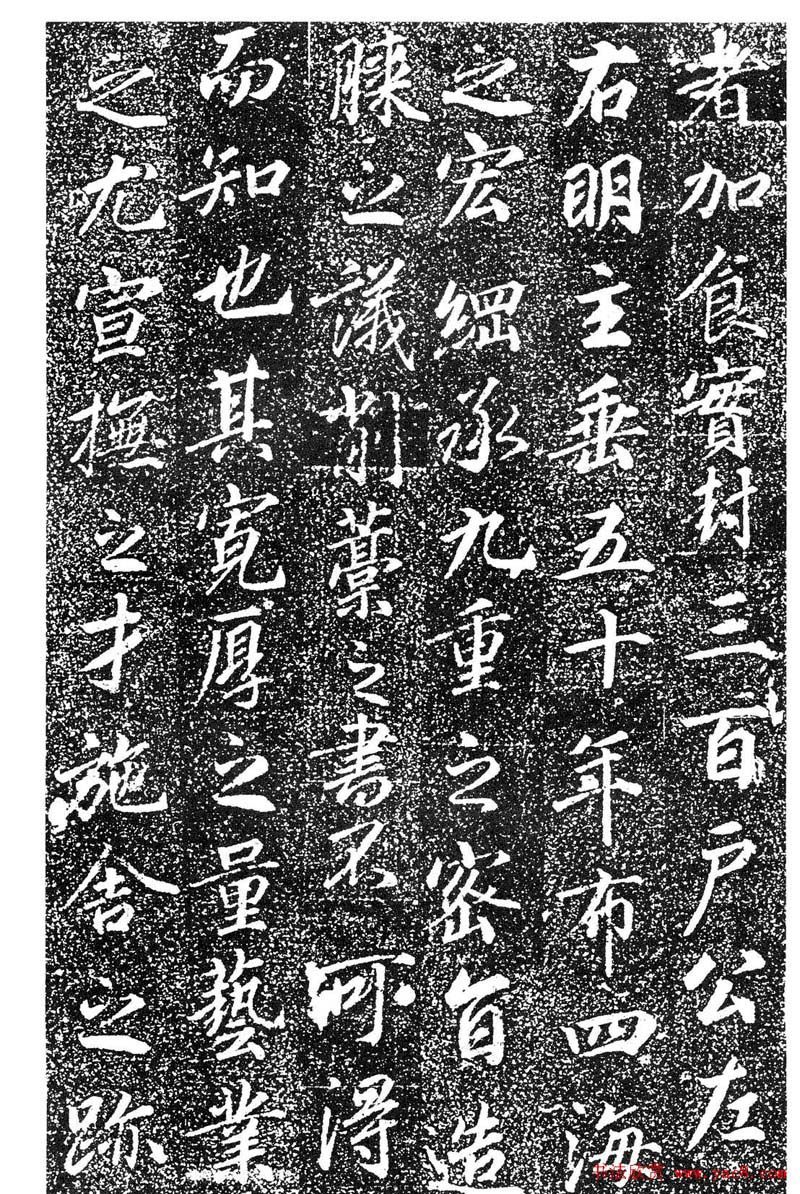 者加食實封三百戶公左
右明主垂五十年布四海
之宏綱承九重之密旨造
膝之議削藁之書不可得
而知也其寬厚之量藝業
之尤宣撫之才施舍之跡
书法欣赏 www.yac8.com